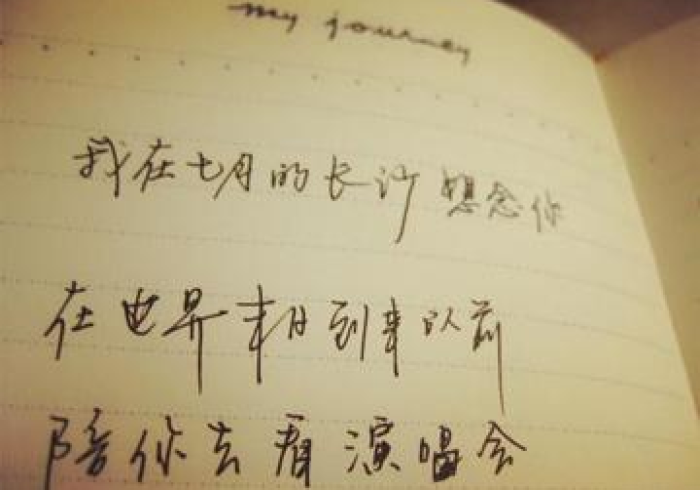 my journey
我在七月的长沙想念你
在世界末日到来以前
陪你去看演唱会